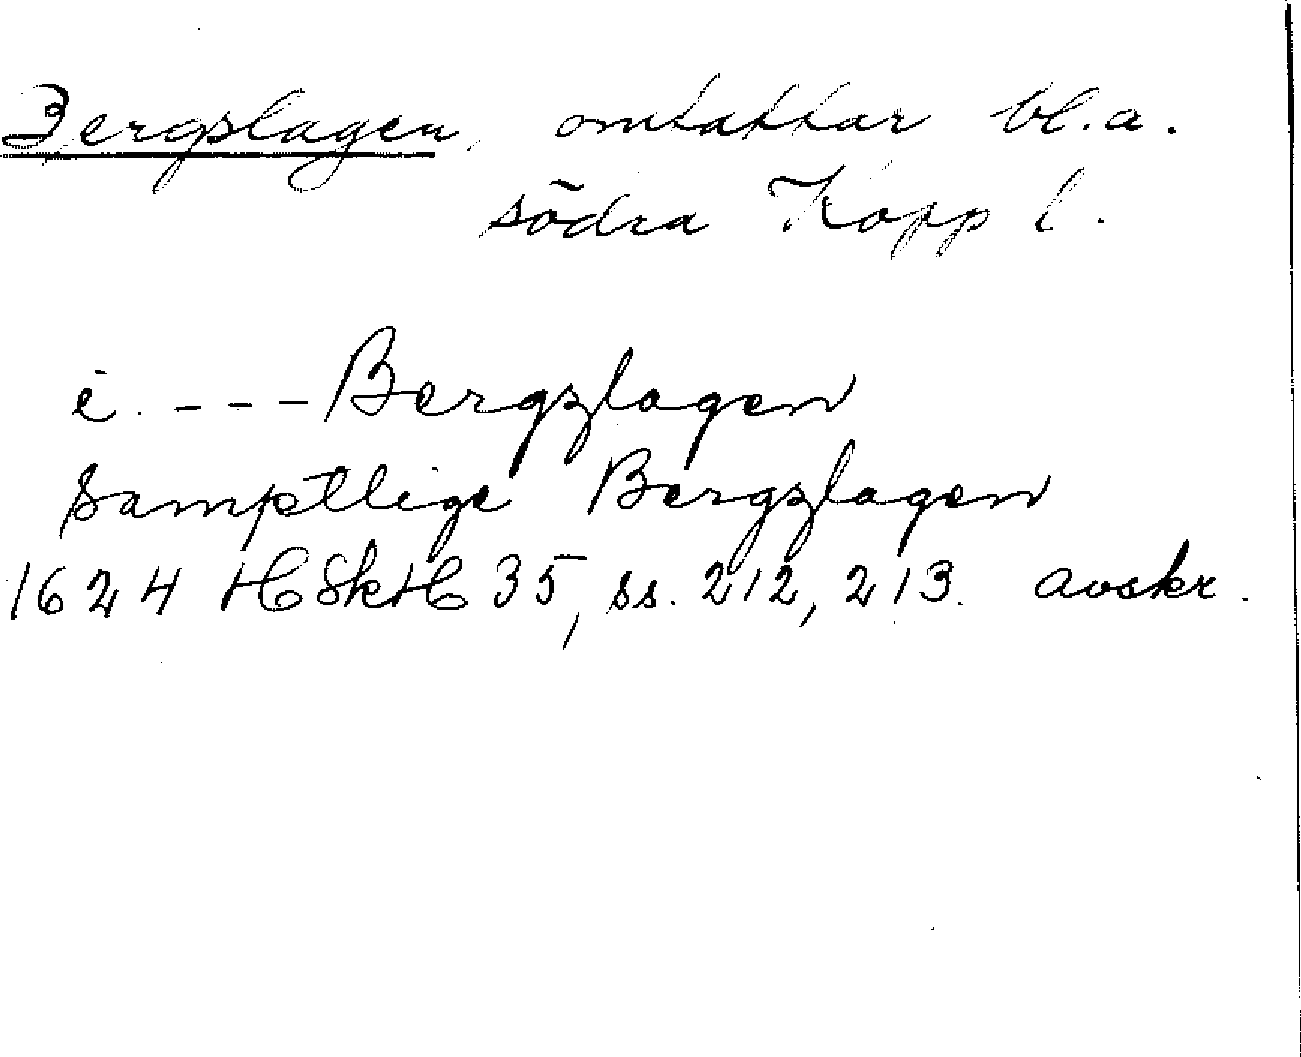 Bergslagen, omfattar bl.a.
södra Kopp l.
i. --- Bergzlagen
Samptlige Bergzlagen
1624 HSkH 35, ss. 212, 213. avskr.